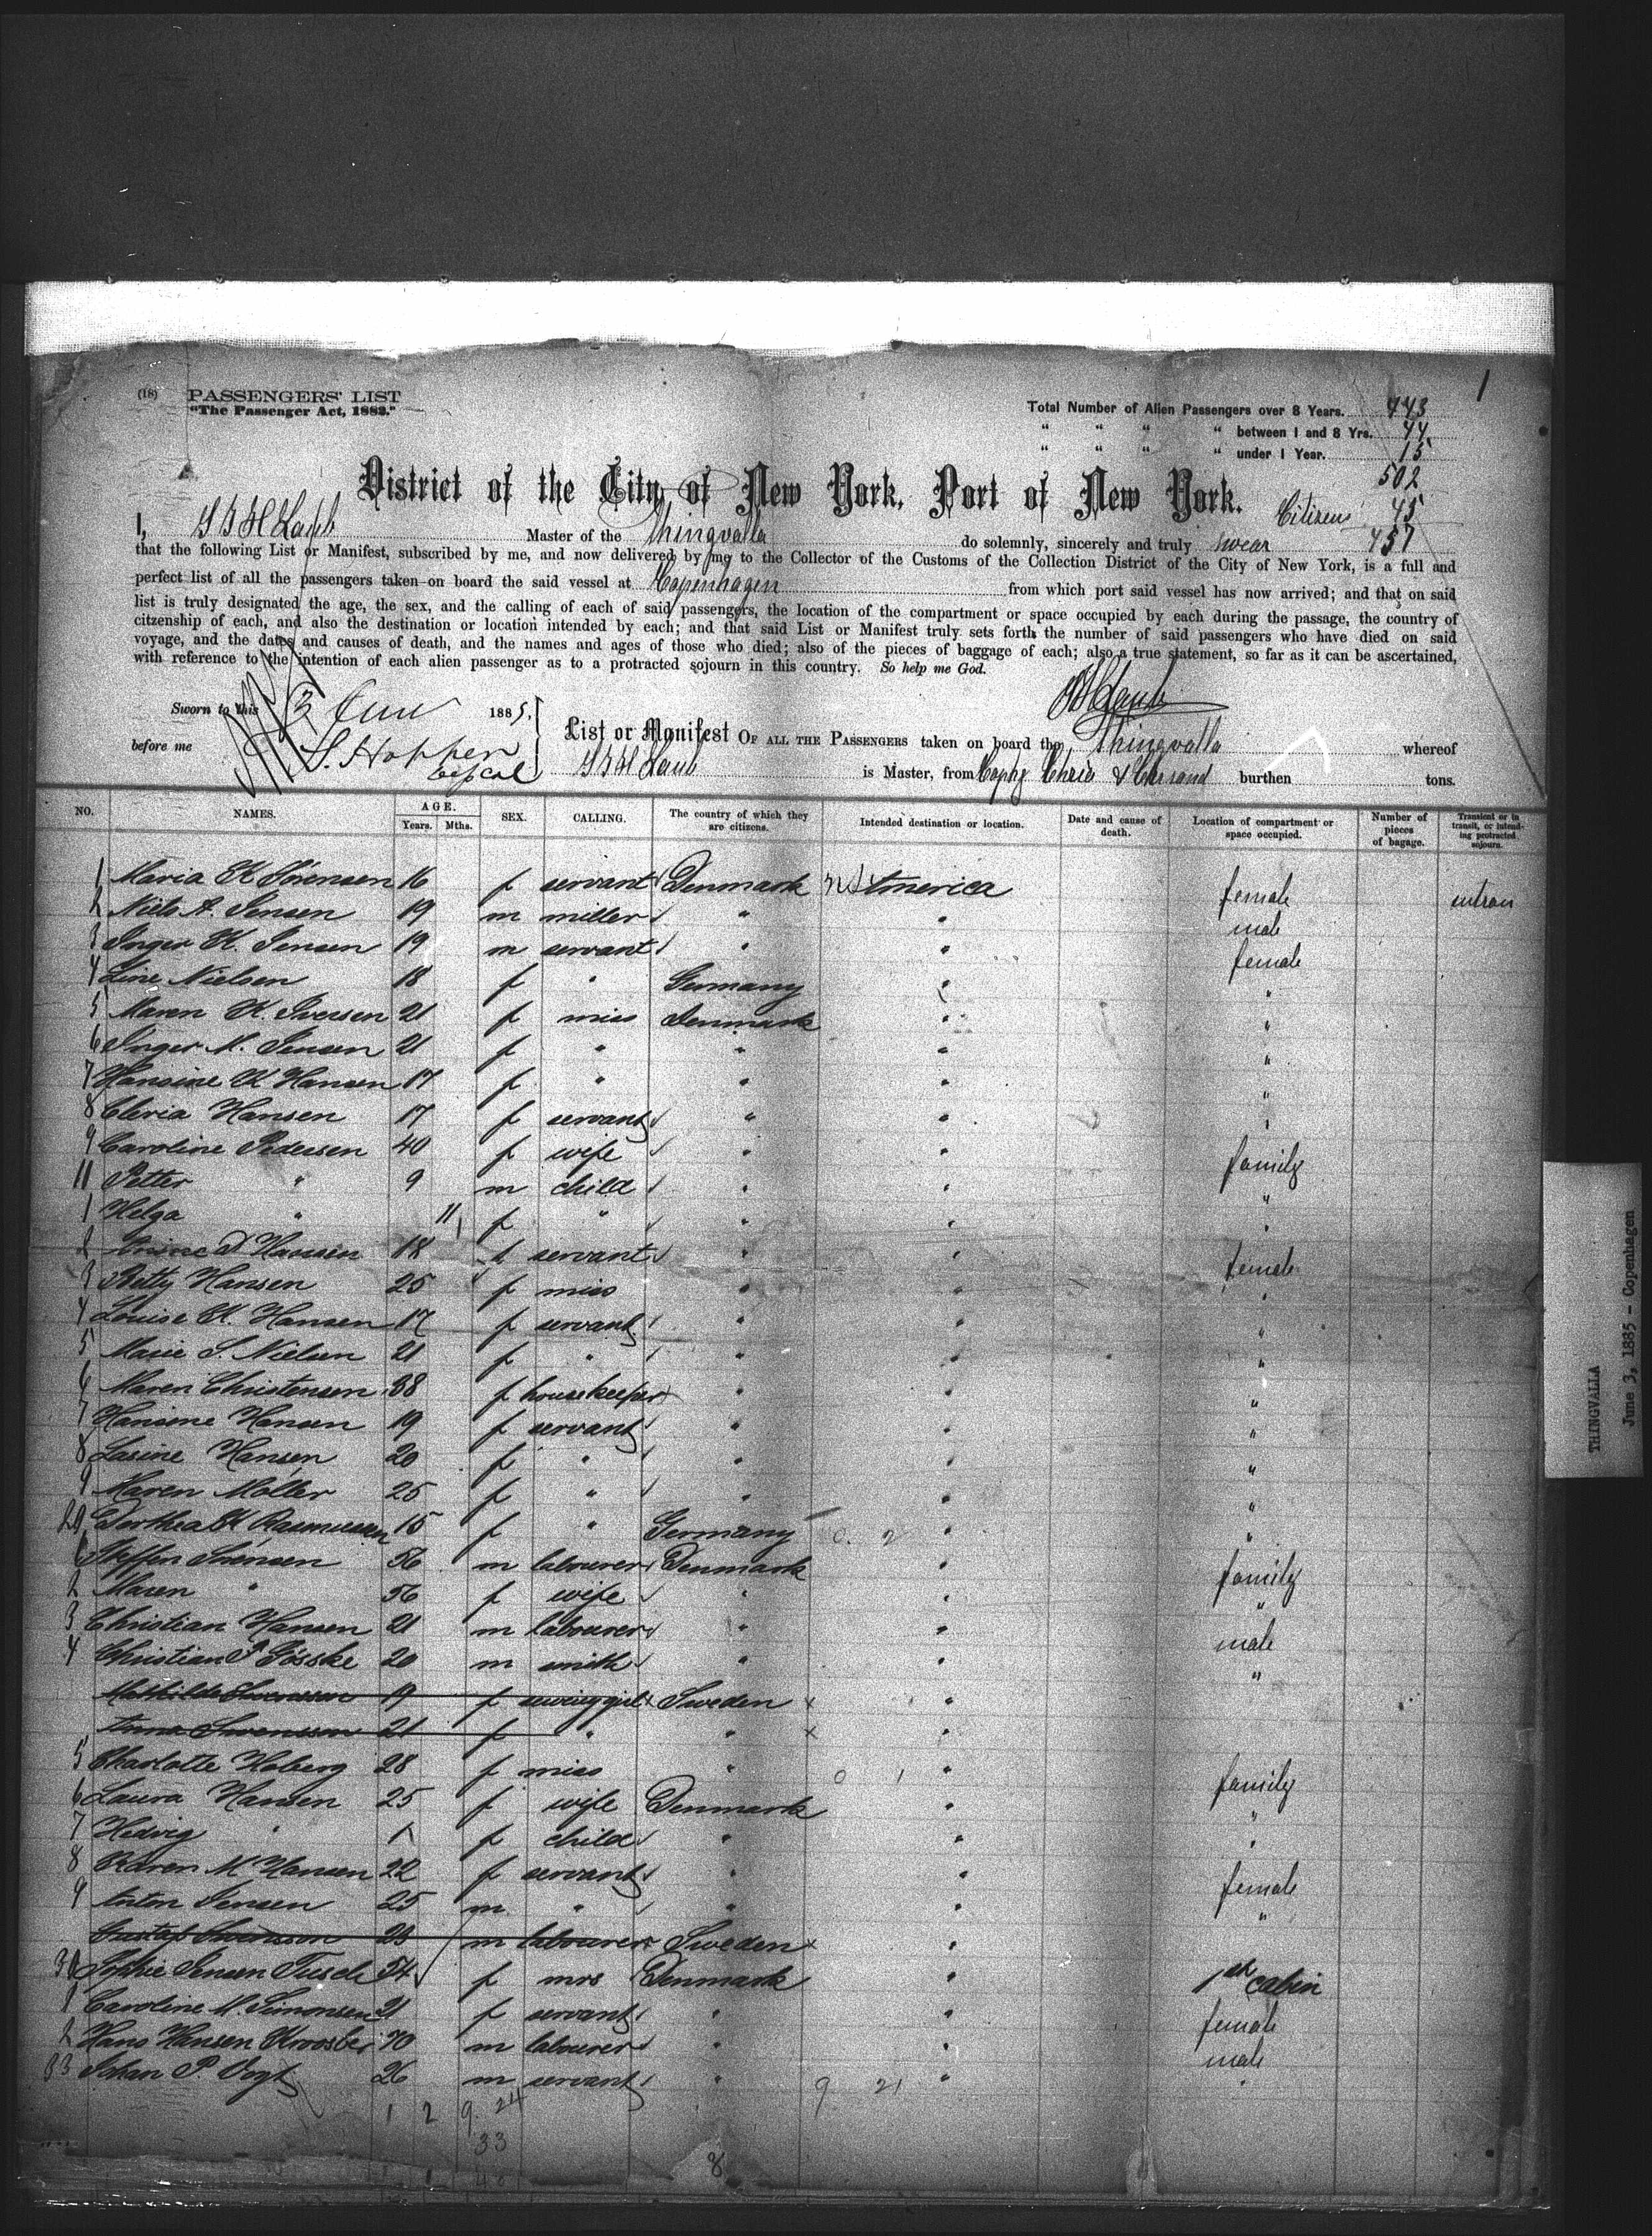 1
(18) PASSENGERS' LIST
"The Passenger Act, 1882."
Total Number of Alien Passengers over 8 Years. 443
" " " " between 1 and 8 Yrs. 44
" " " " under 1 Year. 15
502
District of the City of New York, Port of New York.
Citizens 45
457
I, Laub Master of the Thingvalla do solemnly, sincerely and truly swear
that the following List or Manifest, subscribed by me, and now delivered by me to the Collector of the Customs of the Collection District of the City of New York, is a full and
perfect list of all the passengers taken on board the said vessel at Copenhagen from which port said vessel has now arrived; and that on said
list is truly designated the age, the sex, and the calling of each of said passengers, the location of the compartment or space occupied by each during the passage, the country of
citzenship of each, and also the destination or location intended by each; and that said List or Manifest truly sets forth the number of said passengers who have died on said
voyage, and the dates and causes of death, and the names and ages of those who died; also of the pieces of baggage of each; also a true statement, so far as it can be ascertained,
with reference to the intention of each alien passenger as to a protracted sojourn in this country. So help me God.
Laub
Sworn to this 3 June 1885.
before me Hopper
List or Manifest OF ALL THE PASSENGERS taken on board the Thingvalla whereof
Laub is Master, from Cophg Chria & Chrsand burthen tons.
NO. NAMES. AGE. Years. Mths. SEX. CALLING. The country of which they are citizens. Intended destination or location. Date and cause of death. Location of compartment or space occupied. Number of pieces of bagage. Transient or in transit, or intending protracted sojourn.
1 Maria K Sörensen 16 f servant Denmark America female
2 Niels A. Jensen 19 m miller " " male
3 Inger K. Jensen 19 m servant " " female
4 Line Nielsen 18 f " Germany " "
5 Maren K. Iversen 21 f miss Denmark " "
6 Inger M. Jensen 21 f " " " "
7 Hansine K Hansen 17 f " " " "
8 Hansen 17 f servant " " "
9 Caroline Pedersen 40 f wife " " family
11 Petter " 9 m child " " "
1 Helga " 11 f " " " "
2 Hansen 18 f servant " " female
3 Betty Hansen 25 f miss " " "
4 Louise K. Hansen 17 f servant " " "
5 Marie S. Nielsen 21 f " " " "
6 Maren Christensen 38 f housekeeper " " "
7 Hansine Hansen 19 f servant " " "
8 Lasine Hansen 20 f " " " "
9 Maren Möller 25 f " " " "
20 Dorthea K Rasmussen 15 f " Germany " "
Steffen Sörensen 56 m labourer Denmark " family
2 Maren " 56 f wife " " "
3 Christian Hansen 21 m labourer " " male
4 Christian P Gösske 20 m smith " " "
Mathilde Swensson 19 f sewing girl Sweden "
Anna Swensson 21 f " " "
5 Charlotte Hoberg 28 f miss " " family
6 Laura Hansen 25 f wife Denmark " "
7 Hedvig " 1 f child " " "
8 Karen M Hansen 22 f servant " " female
9 Anton Jensen 25 m " " " "
Gustaf Swensson 23 m labourer Sweden "
30 Sophie Jensen Tusch 54 f mrs Denmark " 1st cabin
1 Caroline M. Simonsen 21 f servant " " female
2 Hans Hansen 70 m labourer " " male
33 Johan P. Vogt 26 m servant " " "
1 2 9 24
33
9 21
8
THINGVALLA
June 3, 1885 - Copenhagen